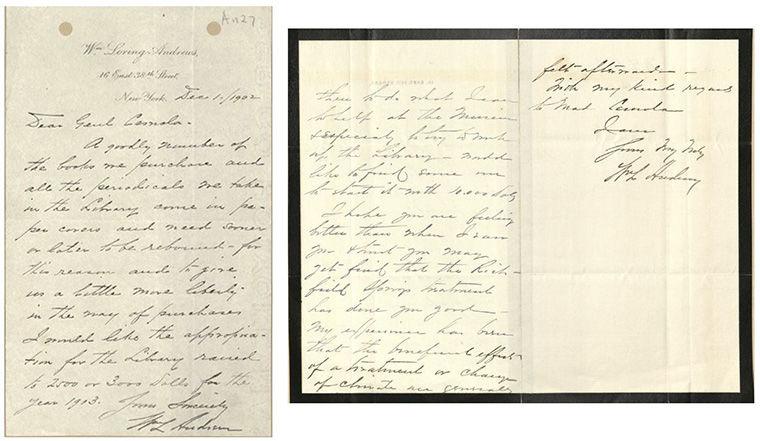 An27
Wm Loring Andrews,
16 East 38th Street,
New York. Dec 1./1902
Dear Genl Cesnola.
A goodly number of
the books we purchase and
all the periodicals we take
in the Library come in pa-
per covers and need sooner
or later to be rebound - for
this reason and to give
us a little more liberty
in the way of purchases
I would like the appropria-
tion for the Library raised
to 2500 or 3000 Dolls for the
year 1903. Yours Sincerely
Wm L Andrews
there to do what I can
to help at the Museum
& especially to try & make
of the Library - would
like to find some one
to start it with 10,000 dolls
I hope you are feeling
better than when I saw
you & trust you may
yet find that the Rich-
field Springs treatment
has done you good -
My experience has been
that the beneficent effects
of a treatment or change
of climate are generally
felt afterward -
With my kind regards
to Mad Cesnola
I am
Yours Very Truly
Wm L Andrews